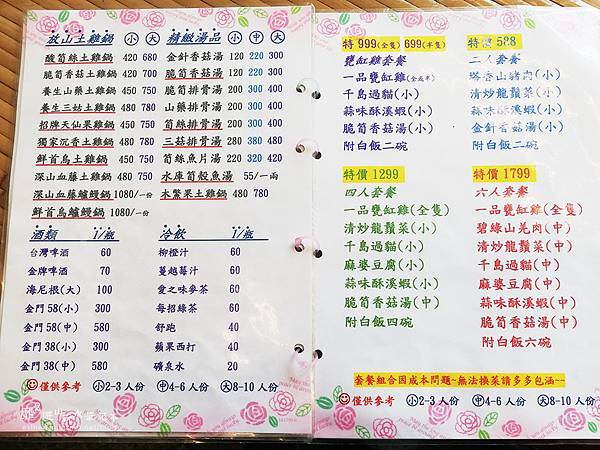 放山土雞鍋 小 大
酸筍絲土雞鍋 420 680
脆筍香菇土雞鍋 420 700
養生山藥土雞鍋 450 750
養生三姑土雞鍋 480 780
招牌天仙果土雞鍋 450 750
獨家沉香土雞鍋 480 780
鮮首烏土雞鍋 450 750
深山血藤土雞鍋 450 750
深山血藤鱸鰻鍋 1080/一份
鮮首烏鱸鰻鍋 1080/一份
精緻湯品 小 中 大
金針香菇湯 120 220 300
脆筍香菇湯 120 220 300
脆筍排骨湯 200 300 400
山藥排骨湯 200 300 400
筍絲排骨湯 200 300 400
三菇排骨湯 280 380 480
筍絲魚片湯 220 320 420
水庫筍殼魚湯 55/一兩
木鱉果土雞鍋 480 780
酒類 1/瓶
台灣啤酒 60
金牌啤酒 70
海尼根(大) 100
金門58(小) 300
金門58(中) 580
金門38(小) 300
金門38(中) 580
冷飲 1/瓶
柳橙汁 60
蔓越莓汁 60
愛之味麥茶 60
每招綠茶 60
舒跑 40
蘋果西打 40
礦泉水 20
僅供參考 小2-3人份 中4-6人份 大8-10人份
特999(全隻) 699(半隻)
甕缸雞套餐
一品甕缸雞(全或半)
千島過貓(小)
蒜味酥溪蝦(小)
脆筍香菇湯(小)
附白飯二碗
特價 588
二人套餐
塔香山豬肉(小)
清炒龍鬚菜(小)
蒜味酥溪蝦(小)
金針香菇湯(小)
附白飯二碗
特價 1299
四人套餐
一品甕缸雞(全隻)
清炒龍鬚菜(小)
千島過貓(小)
麻婆豆腐(小)
蒜味酥溪蝦(小)
脆筍香菇湯(中)
附白飯四碗
特價 1799
六人套餐
一品甕缸雞(全隻)
碧綠山羌肉(中)
清炒龍鬚菜(中)
千島過貓(中)
麻婆豆腐(中)
蒜味酥溪蝦(中)
脆筍香菇湯(中)
附白飯六碗
套餐組合因成本問題-無法換菜請多多包涵~~
僅供參考 小2-3人份 中4-6人份 大8-10人份